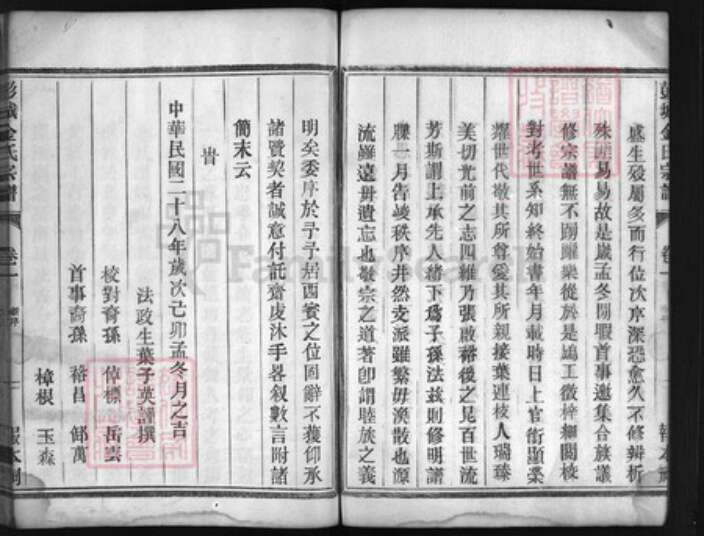 盛生殁屬多而行位次序深恐愈久不修辨析
殊難易易故是歲孟冬閒暇首事邀集合族議
修宗譜無不踴躍樂從於是鳩工徵梓細閱校
對考世系知終始書年月載時日上官銜顯榮
耀世代敬其所尊愛其所親接葉連枝人瑞臻
美切光前之志四維乃張啟裕後之見百世流
芳斯謂上承先人緒下為子孫法茲則修明譜
牒一月告竣秩序井然支派雖繁毋渙散也源
流雖遠毋遺忘也敬宗之道著卽謂睦族之義
明矣委序於予予居西賓之位固辭不獲仰承
諸賢契者誠意付託齋虔沐手畧叙數言附諸
簡末云
旹
中華民國二十八年歲次己卯孟冬月之吉
法政生葉子英譜撰
校對裔孫 標 岳雲
首事裔孫 裕昌 邰萬
樟根 玉森
彭城金氏宗譜 卷一
報本